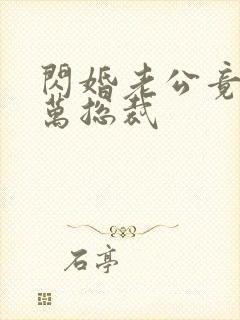 閃婚老公竟
萬總裁
石亭